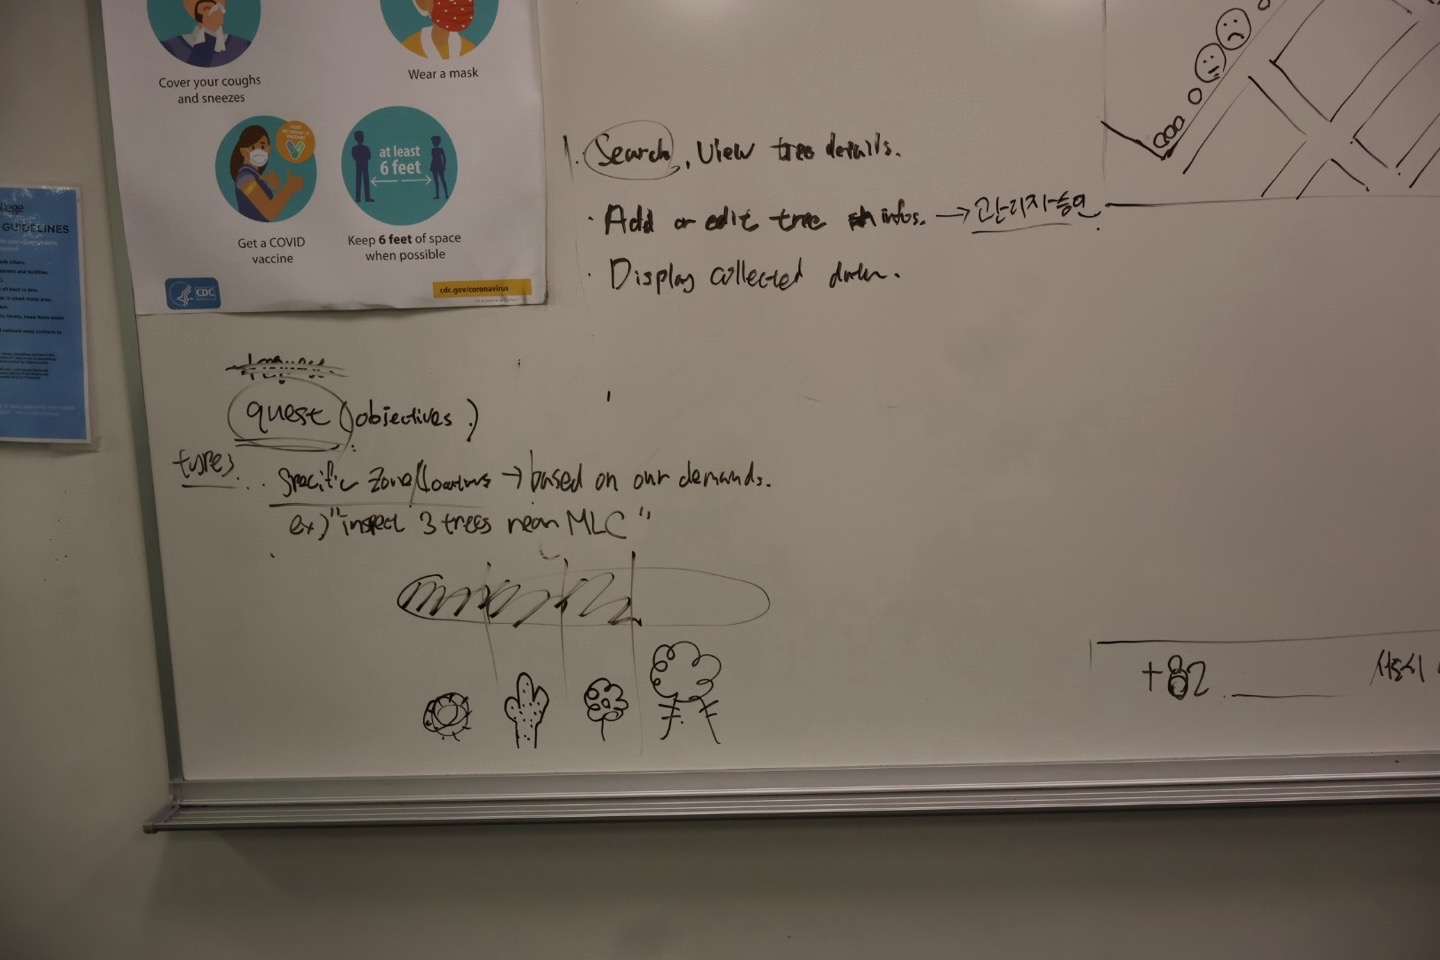 Cover your coughs
and sneezes
Wear a mask
at least
6 feet
Get a COVID
vaccine
Keep 6 feet of space
when possible
CDC
cdc.gov/coronavirus
GUIDELINES
1. Search, View tree details.
· Add or edit tree infos. → 관리자승인
· Display collected data.
quest (objectives)
types
Specific Zone/locations → based on our demands.
ex) "inspect 3 trees near MLC"
+82